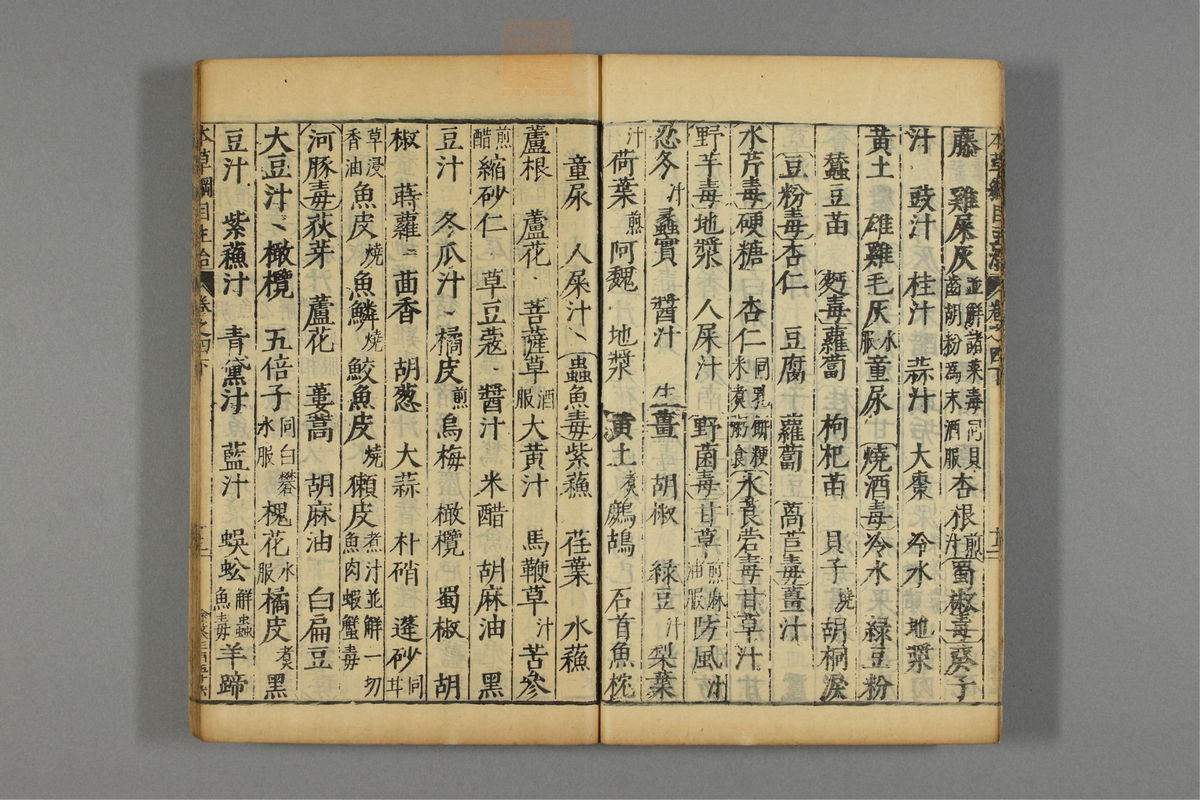 藤 雞屎灰 並解諸菜毒 齒胡粉爲末酒服 杏根 煎汁 蜀椒毒 葵子
汁 豉汁 桂汁 蒜汁 大棗 冷水 地漿
黄土 雄雞毛灰 水服 童尿 燒酒毒 冷水 綠豆粉
蠶豆苗 麪毒 蘿蔔 枸杞苗 貝子 燒 胡桐淚
豆粉毒 杏仁 豆腐 蘿蔔 萵苣毒 薑汁
水芹毒 硬糖 杏仁 同乳餅粳米煮粥食 水莨菪毒 甘草汁
野芋毒 地漿 人屎汁 野菌毒 甘草 煎麻油服 防風 汁
忍冬 汁 蠡實 醬汁 生薑 胡椒 綠豆 汁 梨葉
汁 荷葉 煎 阿魏 地漿 黄土 煮 鷓鴣 石首魚枕
童尿 人屎汁 蟲魚毒 紫蘓 荏葉 水蘓
蘆根 蘆花 菩薩草 酒服 大黄汁 馬鞭草 汁 苦參
煎醋 縮砂仁 草豆蔻 醬汁 米醋 胡麻油 黑
豆汁 冬瓜汁 橘皮 煎 烏梅 橄欖 蜀椒 胡
椒 蒔蘿 茴香 胡葱 大蒜 朴硝 蓬砂 同甘
草浸香油 魚皮 燒 魚鱗 燒 鮫魚皮 燒 獺皮 煮汁並解一切魚肉蝦蟹毒
河豚毒 荻芽 蘆花 蔞蒿 胡麻油 白扁豆
大豆汁 橄欖 五倍子 同白礬水服 槐花 水服 橘皮 煮 黑
豆汁 紫蘓汁 青黛汁 藍汁 蜈蚣 解蟲魚毒 羊蹄
本草綱目主治 卷之四下